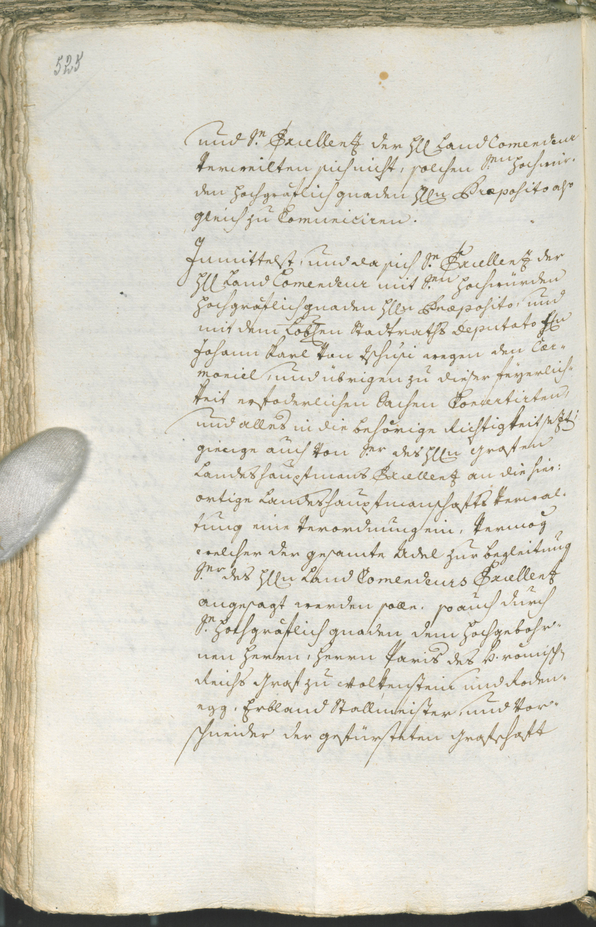 525
und Sr. Excellentz der Hll Land Comendeur
verweilten sich nicht, solchen Sr. Hochwür-
den hochgräflich gnaden Hllen Præposito also
gleich zu Comuniciren.
Inmittelst, und da sich Sr. Excellentz der
Hll Land Comendeur mit Sr. Hochwürden
hochgräflich gnaden Hllen Præposito, und
mit dem Löbl. Stadtraths Deputato Hllen
Johann Karl von Tschusi wegen den Cæ-
moniel, und übrigen zu dieser feyerlich-
keit erfoderlichen Sachen Concertirten,
und alles in die behörige Richtigkeit setzte,
gienge auch von Sr. des Hllen Grafen
Landeshauptmans Excellentz an die hier-
ortige Landeshauptmanschafts Verwal-
tung eine Verordnung ein, vermög
welcher der gesamte Adel zur begleitung
Sr. des Hllen Land Comendeurs Excellentz
angesagt werden solle. so auch durch
Sr. Hochgräflich gnaden dem hochgebohr-
nen Herrn, Herrn Paris des h. römisch
Reichs Graf zu Wolkenstein und Roden-
egg, Erbland Stallmeister, und Vor-
schneider der gefürsteten Grafschaft